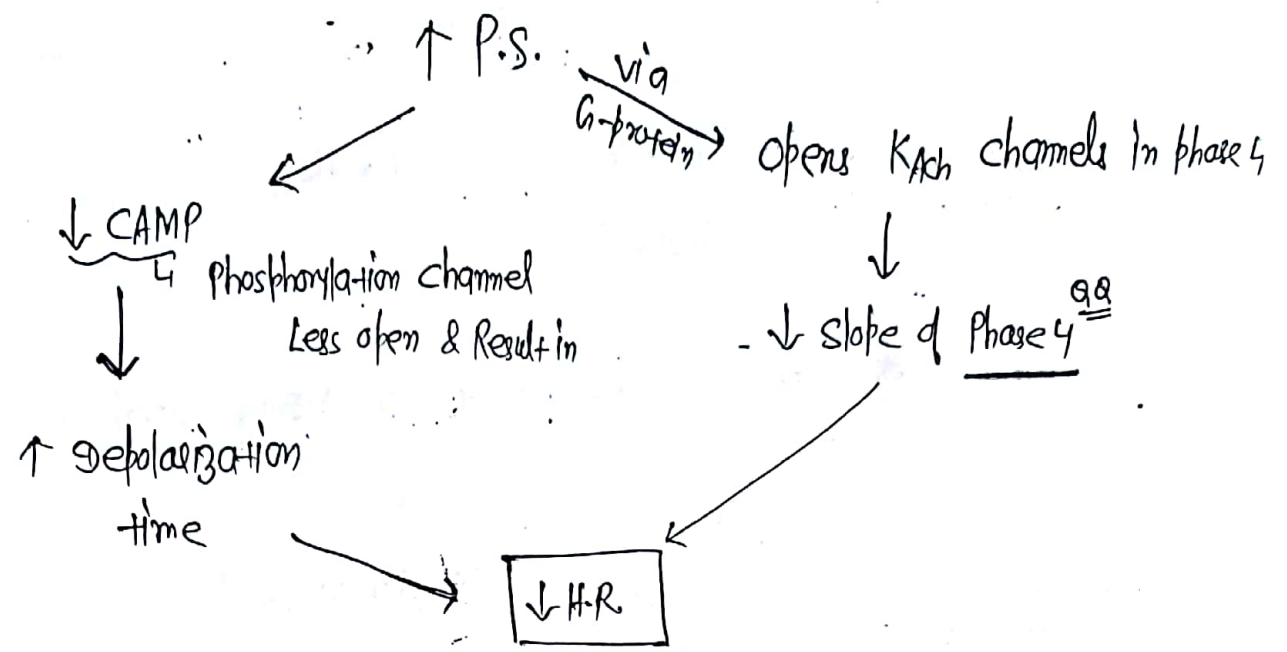 ↑ P.S.
via
G-protein
opens KAch channels in phase 4
↓ CAMP
↳ Phosphorylation channel
Less open & Result in
- ↓ Slope of Phase 4 QQ
↑ Depolarization
time
↓ H.R